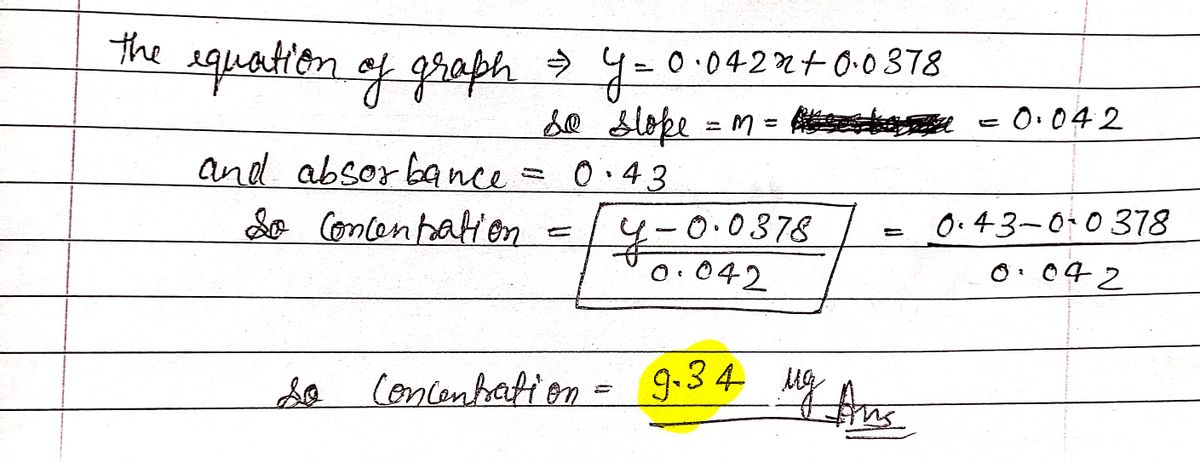 the equation of graph ⇒ y = 0.042x + 0.0378
so slope = m = = 0.042
and absorbance = 0.43
So Concentration = y - 0.0378 / 0.042 = 0.43 - 0.0378 / 0.042
So Concentration = 9.34 μg Ans